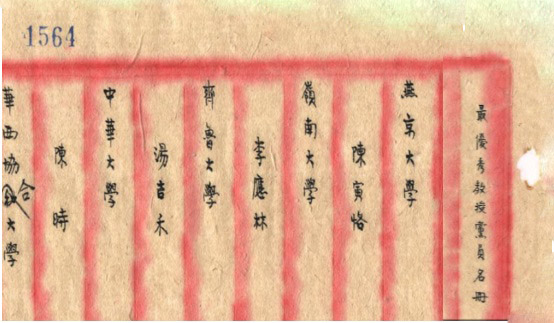 1564
最優秀教授黨員名冊
燕京大學
陳寅恪
嶺南大學
李應林
齊魯大學
湯吉禾
中華大學
陳時
華西協合大學